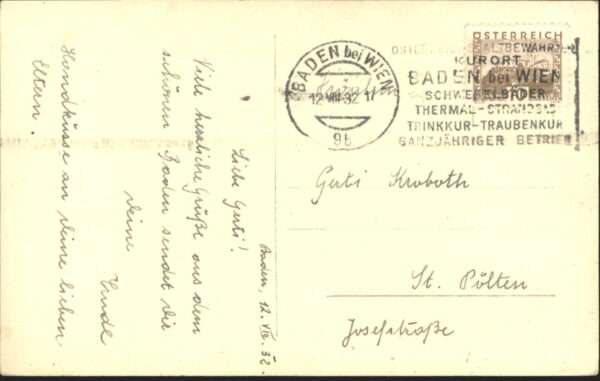 Baden, 12. VII. 32.
Liebe Gerti!
Viele herzliche Grüße aus dem
schönen Baden sendet Dir
Deine
Handküsse an Deine lieben
Eltern.
ÖSTERREICH
BADEN bei WIEN
12 VII 32 17
9b
ALTBEWÄHRTER
KURORT
BADEN bei WIEN
SCHWEFELBÄDER
THERMAL-STRANDBAD
TRINKKUR-TRAUBENKUR
GANZJÄHRIGER BETRIEB
Gerti Kroboth
St. Pölten
Josefstraße